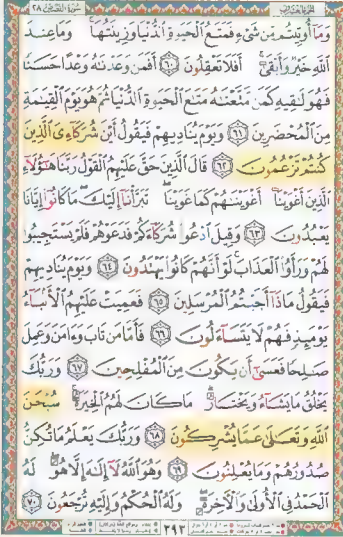 سُورَةُ القَصَصِ ٢٨
وَمَآ أُوتِيتُم مِّن شَىْءٍ فَمَتَٰعُ ٱلْحَيَوٰةِ ٱلدُّنْيَا وَزِينَتُهَا ۚ وَمَا عِندَ
ٱللَّهِ خَيْرٌ وَأَبْقَىٰٓ ۚ أَفَلَا تَعْقِلُونَ ٦٠ أَفَمَن وَعَدْنَٰهُ وَعْدًا حَسَنًا
فَهُوَ لَٰقِيهِ كَمَن مَّتَّعْنَٰهُ مَتَٰعَ ٱلْحَيَوٰةِ ٱلدُّنْيَا ثُمَّ هُوَ يَوْمَ ٱلْقِيَٰمَةِ
مِنَ ٱلْمُحْضَرِينَ ٦١ وَيَوْمَ يُنَادِيهِمْ فَيَقُولُ أَيْنَ شُرَكَآءِىَ ٱلَّذِينَ
كُنتُمْ تَزْعُمُونَ ٦٢ قَالَ ٱلَّذِينَ حَقَّ عَلَيْهِمُ ٱلْقَوْلُ رَبَّنَا هَٰٓؤُلَآءِ
ٱلَّذِينَ أَغْوَيْنَآ أَغْوَيْنَٰهُمْ كَمَا غَوَيْنَا ۖ تَبَرَّأْنَآ إِلَيْكَ ۖ مَا كَانُوٓا۟ إِيَّانَا
يَعْبُدُونَ ٦٣ وَقِيلَ ٱدْعُوا۟ شُرَكَآءَكُمْ فَدَعَوْهُمْ فَلَمْ يَسْتَجِيبُوا۟
لَهُمْ وَرَأَوُا۟ ٱلْعَذَابَ ۚ لَوْ أَنَّهُمْ كَانُوا۟ يَهْتَدُونَ ٦٤ وَيَوْمَ يُنَادِيهِمْ
فَيَقُولُ مَاذَآ أَجَبْتُمُ ٱلْمُرْسَلِينَ ٦٥ فَعَمِيَتْ عَلَيْهِمُ ٱلْأَنۢبَآءُ
يَوْمَئِذٍ فَهُمْ لَا يَتَسَآءَلُونَ ٦٦ فَأَمَّا مَن تَابَ وَءَامَنَ وَعَمِلَ
صَٰلِحًا فَعَسَىٰٓ أَن يَكُونَ مِنَ ٱلْمُفْلِحِينَ ٦٧ وَرَبُّكَ
يَخْلُقُ مَا يَشَآءُ وَيَخْتَارُ ۗ مَا كَانَ لَهُمُ ٱلْخِيَرَةُ ۚ سُبْحَٰنَ
ٱللَّهِ وَتَعَٰلَىٰ عَمَّا يُشْرِكُونَ ٦٨ وَرَبُّكَ يَعْلَمُ مَا تُكِنُّ
صُدُورُهُمْ وَمَا يُعْلِنُونَ ٦٩ وَهُوَ ٱللَّهُ لَآ إِلَٰهَ إِلَّا هُوَ ۖ لَهُ
ٱلْحَمْدُ فِى ٱلْأُولَىٰ وَٱلْءَاخِرَةِ ۖ وَلَهُ ٱلْحُكْمُ وَإِلَيْهِ تُرْجَعُونَ ٧٠
٣٩٣